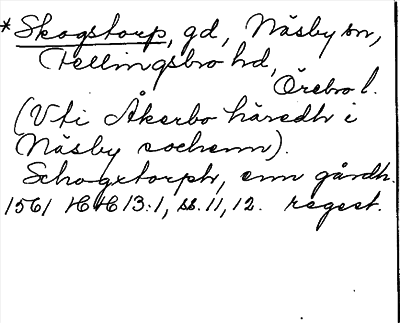 *Skogstorp, gd, Näsby sn,
Fellingsbro hd,
Örebro l.
(Vti Åkerbo häredh i
Näsby sochenn).
Schogxtorph, enn gårdh.
1561 HH 13:1, ss. 11, 12. regest.